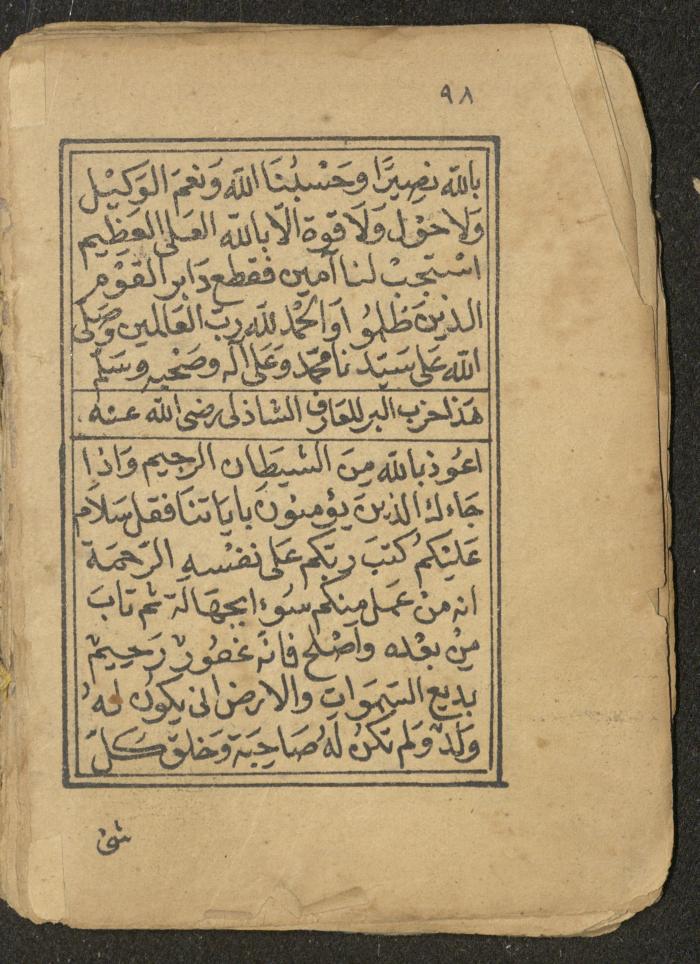 ٩٨
بالله نصيرًا وحَسْبُنَا الله وَنعمَ الوَكيْل
وَلا حَوْل وَلَا قوة الّا بالله العَلى العَظِيم
اسْتجبْ لنا آمين فقطع دَابر القوْم
الذينَ ظلمُوا وَالحمْد لله ربّ العَالمين وَصَلى
الله عَلى سَيّدنا محمّد وَعَلى آله وصَحْبِه وسَلّم
هَذا حزب البر للعَارف الشاذلى رضى الله عنه.
اعُوذ بالله مِنَ الشيطَان الرجيم وَاذا
جَاءك الذينَ يؤمنونَ بايَاتنَا فقل سَلَام
عَليْكمْ كتبَ ربّكم عَلى نفسْهِ الرّحمَة
انه مَنْ عَمَل مِنكم سُوءا بجهَالة ثم تابَ
مِنْ بعْده واصْلح فانّه غفورٌ رَحِيمٌ
بديع السّمَوات والارض انى يكوُن لهُ
ولَدٌ وَلم تكنْ لهُ صَاحِبَة وَخلق كلّ
شئ